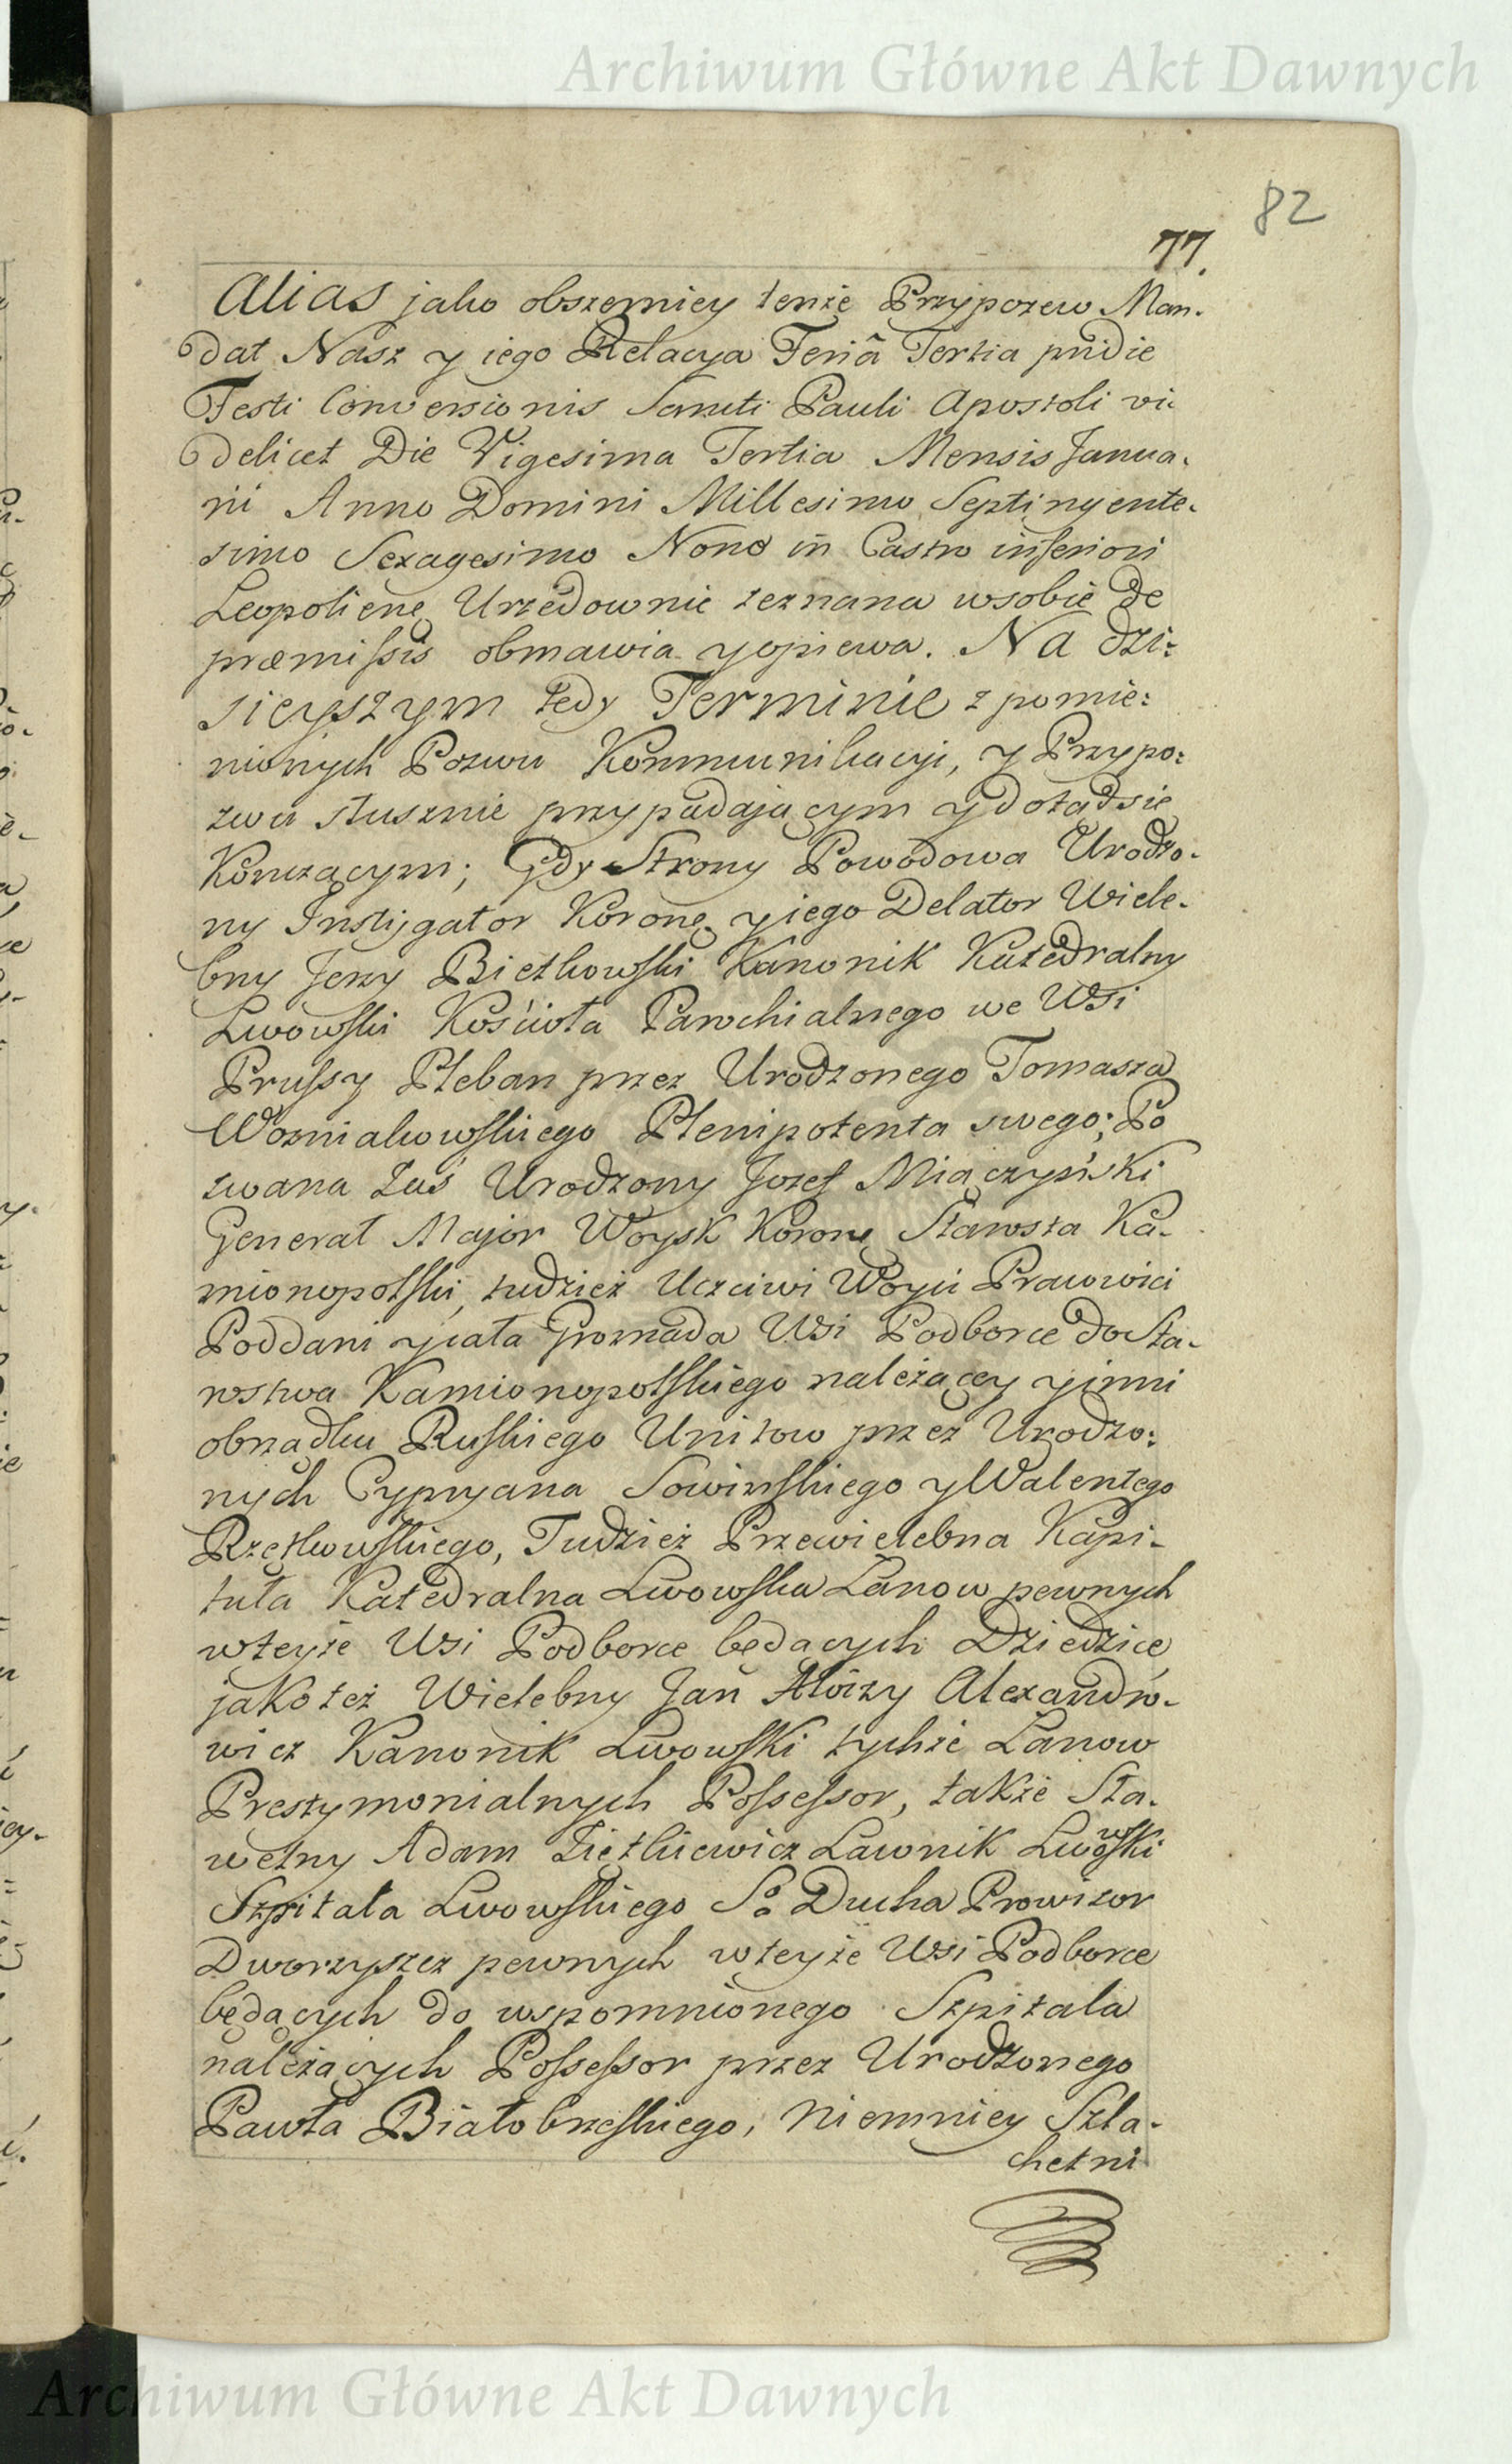 Archiwum Główne Akt Dawnych
82
77.
Alias jako obszerniey tenże Przypozew Man-
dat Nasz y iego Relacya Feriâ Tertia pridie
Festi Conversionis Sancti Pauli Apostoli vi-
delicet Die Vigesima Tertia Mensis Janua-
rii Anno Domini Millesimo Septingente-
simo Sexagesimo Nono in Castro inferiori
Leopolieñe Urzędownie zeznana wsobie de
præmissis obmawia y opiewa. Na dzi:
sieyszym tedy Terminie z pomie:
nionych Pozwu Kommunikacyi, y Przypo:
zwu słusznie przypadającym y dotądsię
Kończącym; Gdy Strony Powodowa Urodzo-
ny Instygator Koronę y iego Delator Wiele-
bny Jerzy Bietkowski Kanonik Katedralny
Lwowski Kościoła Parochialnego we Wsi
Prussy Pleban przez Urodzonego Tomasza
Wozniakowskiego Plenipotenta swego; Po
zwana Zaś Urodzony Jozef Miączyński
Generał Major Woysk Koronę Starosta Ka-
mionopolski, tudzież Uczciwi Woyci Prawowici
Poddani y cała Gromada Wsi Podborce do Sta-
rostwa Kamionopolskiego należącey y inni
obrządku Ruskiego Unitow przez Urodzo:
nych Cypryana Sowinskiego y Walentego
Rzętkowskiego, Tudzież Przewielebna Kapi-
tuła Katedralna Lwowska Łanow pewnych
wteyże Wsi Podborce będących Dziedzice
jako też Wielebny Jan Aloizy Alexandro-
wicz Kanonik Lwowski tychże Łanow
Prestymonialnych Possessor, także Sła-
wetny Adam Ziętkiewicz Ławnik Lwowski
Szpitala Lwowskiego So Ducha Prowizor
Dworzyszcz pewnych wteyże Wsi Podborce
będących do wspomnionego Szpitala
należących Possessor przez Urodzonego
Pawła Białobrzeskiego, niemniey Szla-
chetni
Archiwum Główne Akt Dawnych